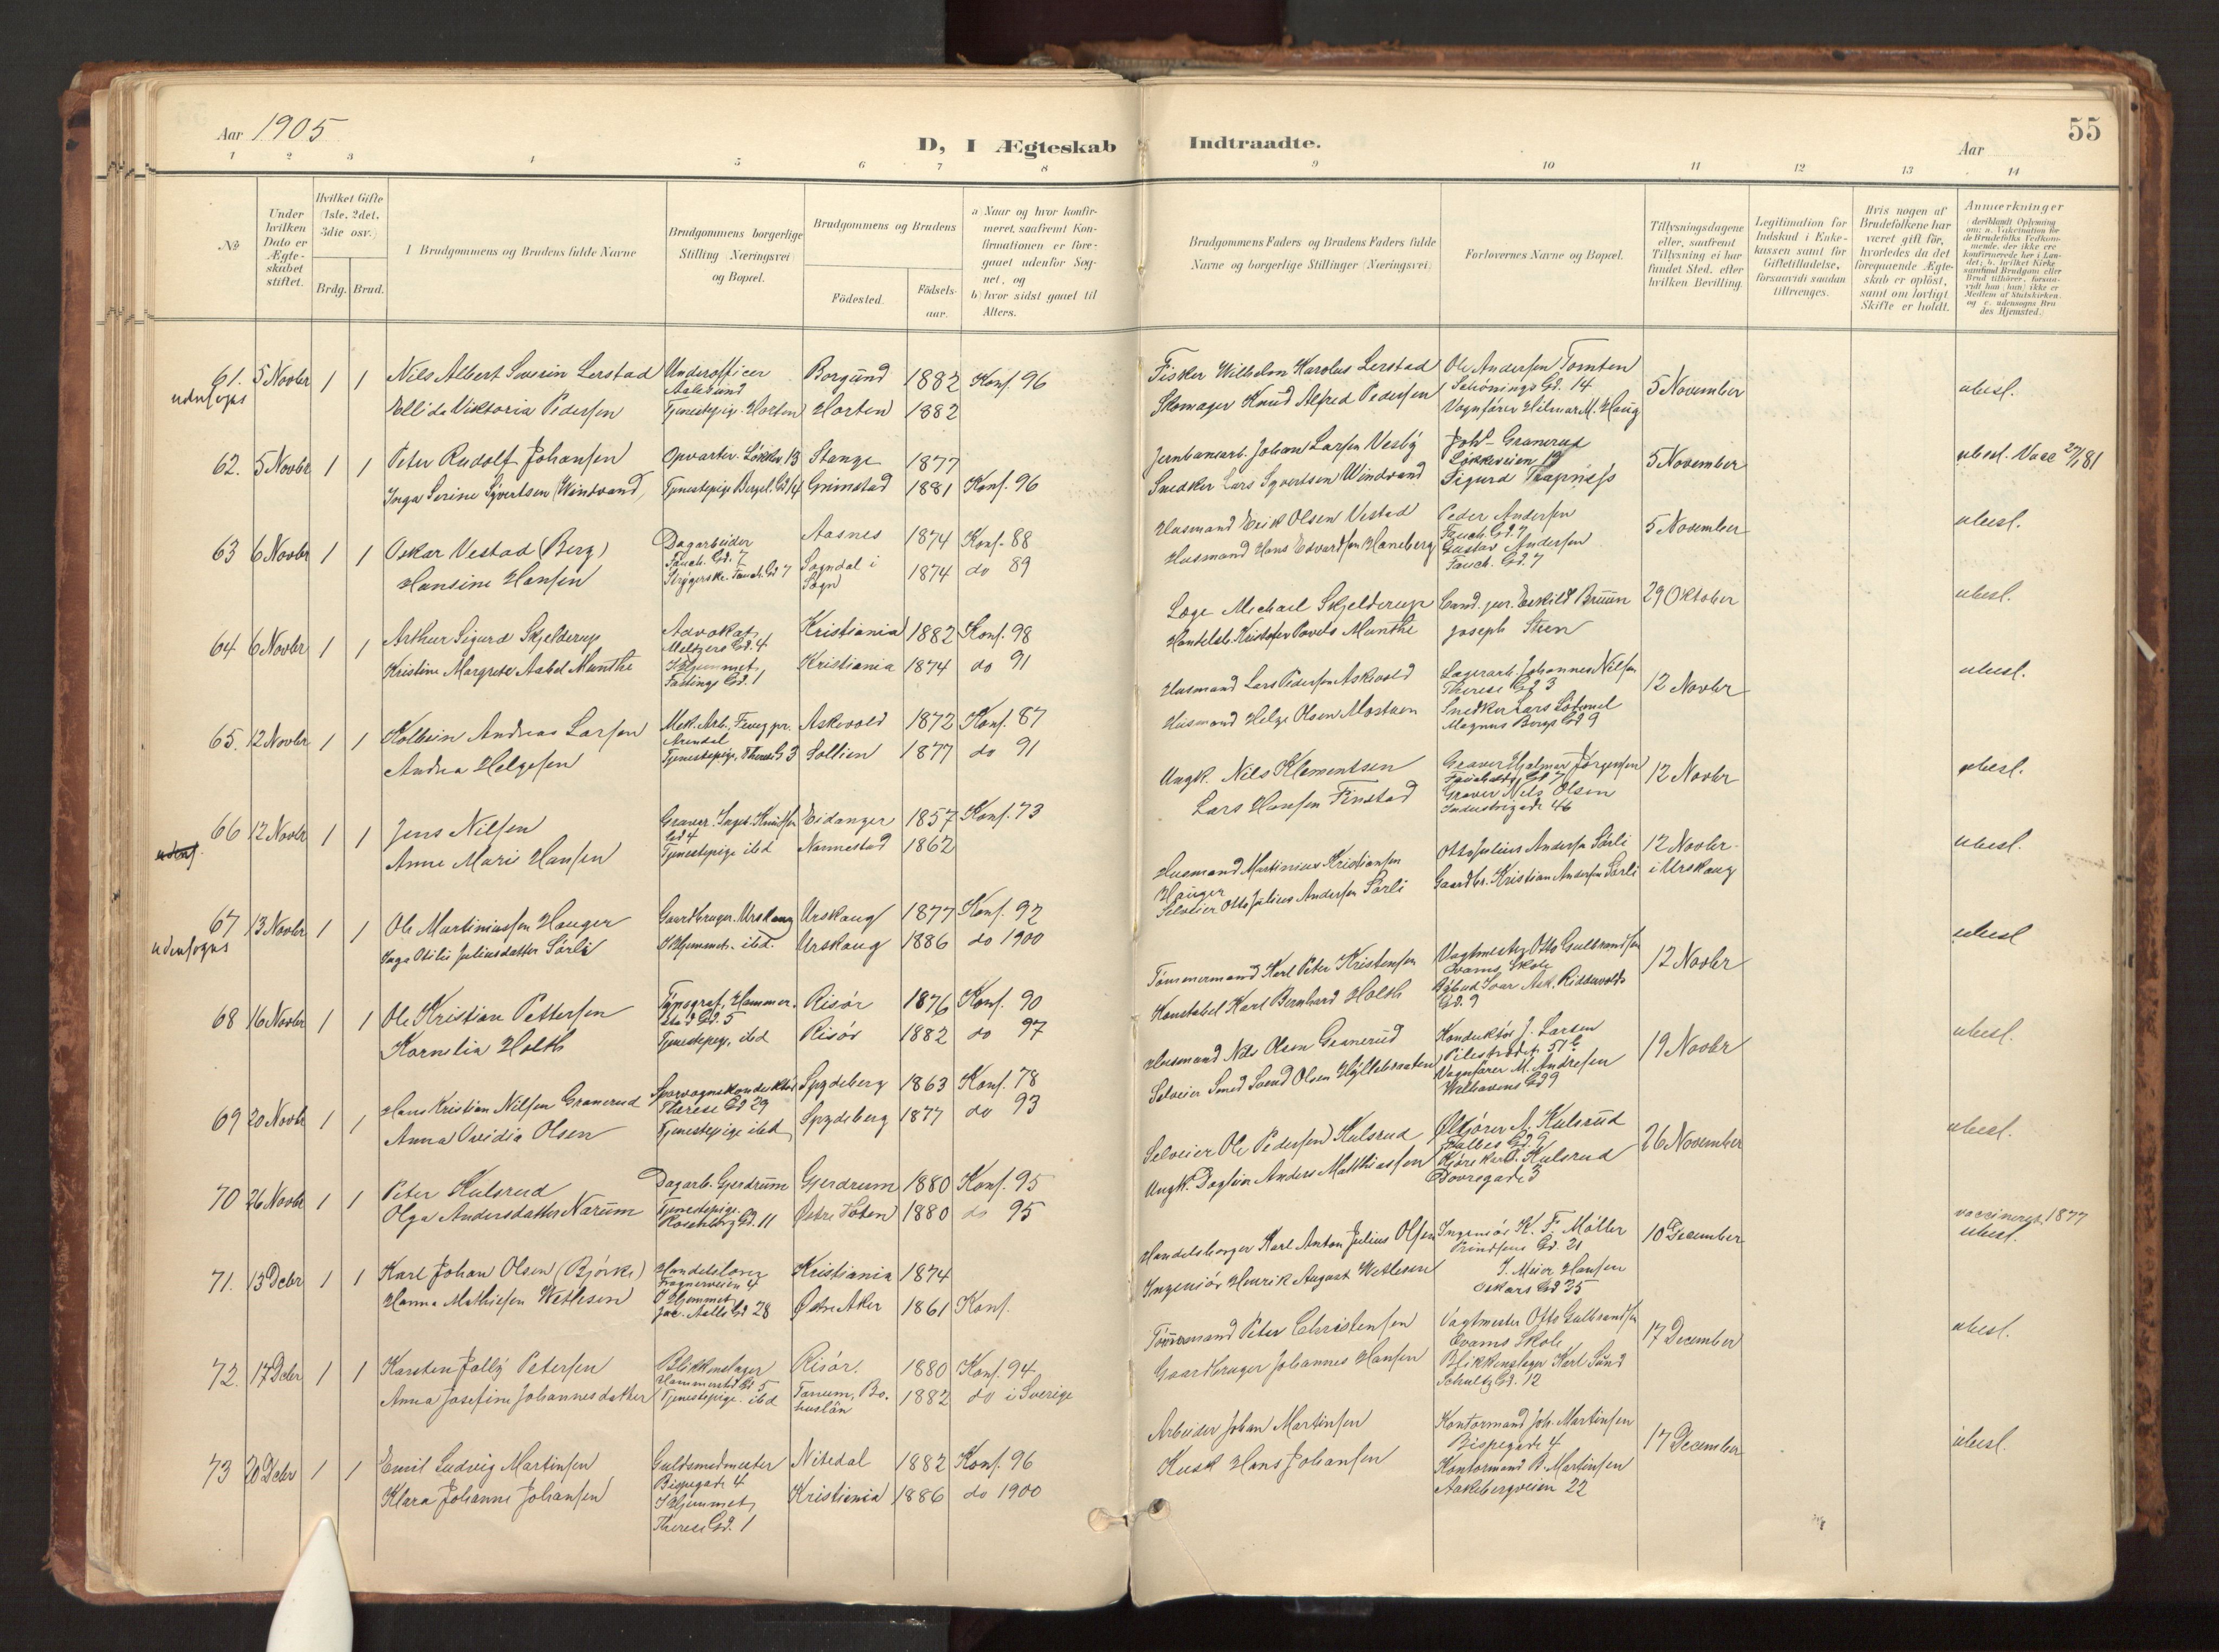 Aar 1905
D, I Ægteskab Indtraadte.
55
Aar
1 2 3 4 5 6 7 8 9 10 11 12 13 14
No
Under hvilken Dato er Ægteskabet stiftet.
Hvilket Gifte (1ste, 2det, 3die osv.)
Brdg. Brud.
I Brudgommens og Brudens fulde Navne
Brudgommens borgerlige Stilling (Næringsvei) og Bopæl.
Brudgommens og Brudens
Fødested.
Fødselsaar.
a) Naar og hvor konfirmeret, saafremt Konfirmationen er foregaaet udenfor Sognet, og
b) hvor sidst gaaet til Alters.
Brudgommens Faders og Brudens Faders fulde Navne og borgerlige Stillinger (Næringsvei)
Forlovernes Navne og Bopæl.
Tillysningsdagene eller, saafremt Tillysning ei har fundet Sted, efter hvilken Bevilling.
Legitimation for Indskud i Enkekassen samt for Giftetilladelse, forsaavidt saadan tiltrænges.
Hvis nogen af Brudefolkene har været gift før, hvorledes da det foregaaende Ægteskab er opløst, samt om lovligt Skifte er holdt.
Anmærkninger (deriblandt Oplysning om: a. Vakcination for de Brudefolks Vedkommende, der ikke ere konfirmerede her i Landet; b. hvilket Kirkesamfund Brudgom eller Brud tilhører, forsaavidt han (hun) ikke er Medlem af Statskirken, og c. udensogns Brudes Hjemsted.)
61. 5 Novbr 1 1 Nils Albert Severin Lerstad Underofficer Aalesund Borgund 1882 Konf. 96
udensogns Ellida Viktoria Pedersen Tjenestepige Horten Horten 1882
Fisker Wilhelm Karolus Lerstad Ole Andersen Tomten Schønings Gd. 14 5 November ubesl.
Skomager Knud Alfred Pedersen Vognfører Hilmar M. Haug
62. 5 Novbr 1 1 Peter Rudolf Johansen Opvarter Løkkev. 13 Stange 1877
Inga Serine Syvertsen (Windvand) Tjenestepige Bergsl. Gd 14 Grimstad 1881 Konf. 96
Jernbanearb. Johan Larsen Vesby Johs Granerud Løkkeveien 19 5 November ubesl. Vacc 27/7 81
Snedker Lars Syvertsen Windvand Sigurd Trapness
63 6 Novbr 1 1 Oskar Vestad (Berg) Dagarbeider Fauch. Gd. 7 Aasnes 1874 Konf. 88
Hansine Hansen Strygerske Fauch. Gd 7 Sogndal i Sogn 1874 do 89
Husmand Erik Olsen Vestad Peder Andersen Fauch. Gd. 7 5 November ubesl.
Husmand Hans Edvardsen Haneberg Gustav Andersen Fauch. Gd. 7
64 6 Novbr 1 1 Arthur Sigurd Skjelderup Advokat Meltzers Gd. 4 Kristiania 1882 Konf. 98
Kristine Margrete Aabel Munthe I Hjemmet, Fastings Gd. 1 Kristiania 1874 do 91
Læge Michael Skjelderup Cand. jur. Eskild Bruun 29 Oktober ubesl.
Handelsb. Kristofer Povels Munthe Joseph Steen
65. 12 Novbr 1 1 Kolbein Andreas Larsen Mek. Arb. Arendal Askevold 1872 Konf. 87
Andrea Helgesen Tjenestepige, Therese G 3 Sollien 1877 do 91
Husmand Lars Pedersen Askevold Lagerarb. Johannes Nilsen Therese Gd 3 12 Novbr ubesl.
Husmand Helge Olsen Mostuen Snedker Lars Magnus Bergs Gd 9
66 12 Novbr 1 1 Jens Nilsen Graver Inges. Knudsen Gd 4 Eidanger 1857 Konf. 73
Anne Marie Hansen Tjenestepige ibd Nannestad 1862
Ungk. Nils Klementsen Graver Hjalmar Jørgensen 12 Novbr ubesl.
Lars Hansen Finstad Graver Nils Olsen Industrigade 46
67 13 Novbr 1 1 Ole Martiniussen Hauger Gaardbruger. Urskoug Urskoug 1877 Konf. 92
udensogns Inga Otilie Juliusdatter Sørli I Hjemmet. ibd. Urskoug 1886 do 1900
Husmand Martinius Kristiansen Hauger Otto Julius Andersen Sørli 12 Novbr. ubesl.
Selveier Otto Julius Andersen Sørli Gaardbr. Kristian Andersen Sørli i Urskoug
68 16 Novbr 1 1 Ole Kristian Pettersen Typograf, Hammerstad Gd. 5 Risør 1876 Konf. 90
Kornelia Holth Tjenestepige, ibd Risør 1882 do 97
Tømmermand Karl Peter Kristensen Vagtmester Otto Gulbrandsen Evams Skole 12 Novbr ubesl
Konstabel Karl Bernhard Holth Ivar Ask, Riddervolds Gd. 9
69 20 Novbr 1 1 Hans Kristian Nilsen Granerud Sporvognskonduktør Therese Gd 29 Spydeberg 1863 Konf. 78
Anna Ovidia Olsen Tjenestepige ibd Spydeberg 1877 do 93
Husmand Nils Olsen Granerud Konduktør J. Larsen Pilestrædet 51 19 Novbr ubesl.
Selveier Smed Svend Olsen Hyllebraaten Vognfører M. Andresen Welhavens Gd 9
70 26 Novbr 1 1 Peter Kulsrud Dagarb. Gjerdrum Gjerdrum 1880 Konf. 95
Olga Andersdatter Narum Tjenestepige. Rosenborg Gd. 11 Østre Toten 1880 do 95
Selveier Ole Pedersen Kulsrud Ølkjører A. Kulsrud Falbes Gd. 9 26 November ubesl.
Ungk. Dagfin Anders Matthiassen Kjørekarl Kulsrud Dovregade 3
71. 13 Debr 1 1 Karl Johan Olsen (Bjørke) Handelsborg Frognerveien 4 Kristiania 1874
Hanna Mathiesen Wetlesen I Hjemmet, Jac. Aalls Gd 28 Østre Aker 1861 Konf.
Handelsborger Karl Anton Julius Olsen Ingeniør K. F. Møller Prindsens Gd. 21 10 December vaccineret 1877 ubesl.
Ingeniør Henrik August Wetlesen J. Meier Hansen Oskars Gd 35
72. 17 Debr 1 1 Karsten Jally Petersen Blikkenslager Hammerstad Gd 5 Risør. 1880 Konf. 94
Anna Josefine Johannesdatter Tjenestepige. ibd Tanum, Bohuslän 1882 do i Sverige
Tømmermand Peter Christensen Vagtmester Otto Gulbrandsen Evams Skole 17 December ubesl.
Gaardbruger Johannes Hansen Blikkenslager Karl Sund Schultz Gd. 12
73 20 Debr 1 1 Emil Ludvig Martinsen Guldsmedmester Bispegade 4 Nitedal 1882 Konf. 96
Klara Johanne Johansen I Hjemmet, Therese Gd. 1 Kristiania 1886 do 1900
Arbeider Johan Martinsen Kontormand Joh. Martinsen Bispegade 4 17 December ubesl.
Kusk Hans Johansen Kontormand B. Martinsen Aakebergveien 22